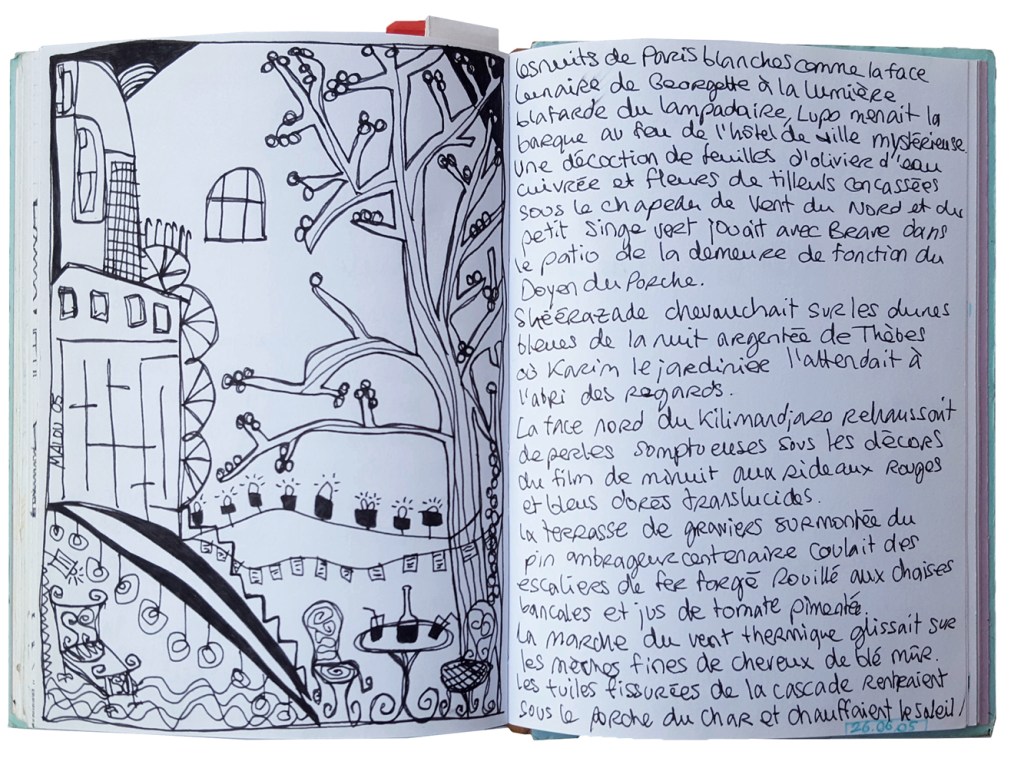 MALOU 05
Les nuits de Paris blanches comme la face
lunaire de Georgette à la lumière
blafarde du lampadaire, Lupo menait la
barque au feu de l'hôtel de ville mystérieuse
une décoction de feuilles d'olivier d'eau
cuivrée et fleurs de tilleuls concassées
sous le chapeau de vent du Nord et du
petit singe vert jouait avec Beare dans
le patio de la demeure de fonction du
Doyen du Porche.
Shéérazade chevauchait sur les dunes
bleues de la nuit argentée de Thèbes
où Karim le jardinier l'attendait à
l'abri des regards.
La face nord du Kilimandjaro rehaussait
de perles somptueuses sous les décors
du film de minuit aux rideaux rouges
et bleus dorés translucides.
La terrasse de graviers surmontée du
pin ombrageur centenaire coulait des
escaliers de fer forgé rouillé aux chaises
bancales et jus de tomate pimenté.
La marche du vent thermique glissait sur
les mèches fines de cheveux de blé mûr.
Les tuiles fissurées de la cascade rentraient
sous le porche du char et chauffaient le soleil /
26.06.05